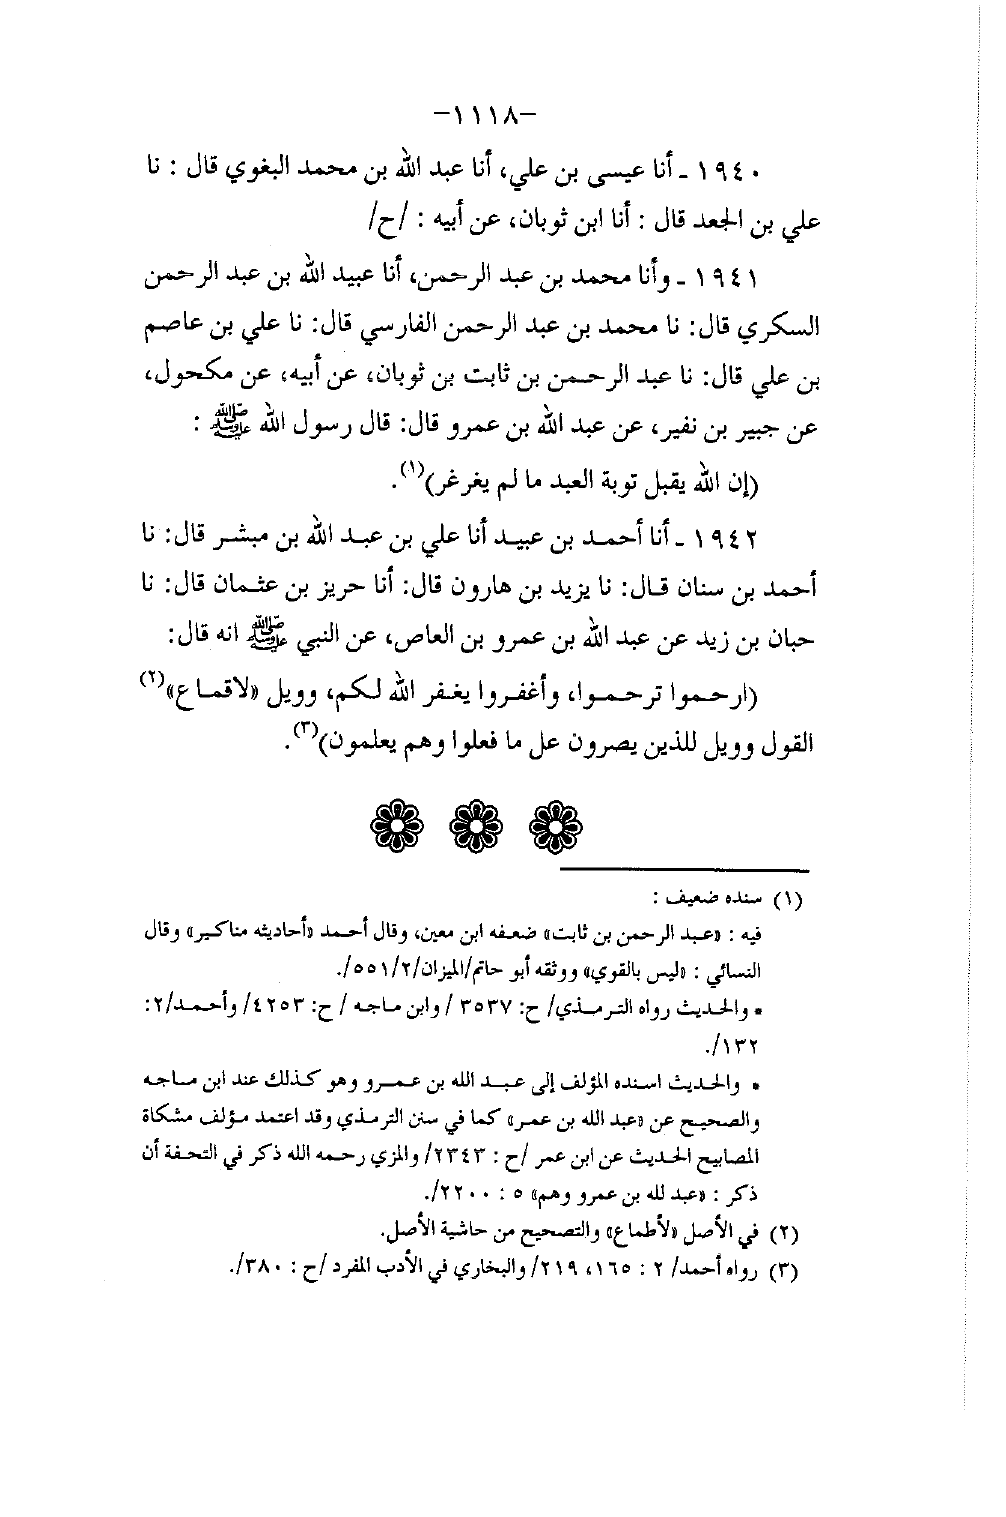 -١١١٨-
١٩٤٠ ـ أنا عيسى بن علي، أنا عبد الله بن محمد البغوي قال : نا
علي بن الجعد قال : أنا ابن ثوبان، عن أبيه : /ح/
١٩٤١ ـ وأنا محمد بن عبد الرحمن، أنا عبيد الله بن عبد الرحمن
السكري قال: نا محمد بن عبد الرحمن الفارسي قال: نا علي بن عاصم
بن علي قال: نا عبد الرحمن بن ثابت بن ثوبان، عن أبيه، عن مكحول،
عن جبير بن نفير، عن عبد الله بن عمرو قال: قال رسول الله ﷺ :
(إن الله يقبل توبة العبد ما لم يغرغر)(١).
١٩٤٢ ـ أنا أحمد بن عبيد أنا علي بن عبد الله بن مبشر قال: نا
أحمد بن سنان قال: نا يزيد بن هارون قال: أنا حريز بن عثمان قال: نا
حبان بن زيد عن عبد الله بن عمرو بن العاص، عن النبي ﷺ انه قال:
(ارحموا ترحموا، وأغفروا يغفر الله لكم، وويل «لاقماع»(٢)
القول وويل للذين يصرون عل ما فعلوا وهم يعلمون)(٣).
(١) سنده ضعيف :
فيه : «عبد الرحمن بن ثابت» ضعفه ابن معين، وقال أحمد «أحاديثه مناكير» وقال
النسائي : «ليس بالقوي» ووثقه أبو حاتم/الميزان/٢/٥٥١/.
• والحديث رواه الترمذي/ ح: ٣٥٣٧ /وابن ماجه / ح: ٤٢٥٣/ وأحمد/٢:
١٣٢/.
• والحديث اسنده المؤلف إلى عبد الله بن عمرو وهو كذلك عند ابن ماجه
والصحيح عن «عبد الله بن عمر» كما في سنن الترمذي وقد اعتمد مؤلف مشكاة
المصابيح الحديث عن ابن عمر /ح : ٢٣٤٣/ والمزي رحمه الله ذكر في التحفة أن
ذكر : «عبد لله بن عمرو وهم» ٥ : ٢٢٠٠/.
(٢) في الأصل «لأطماع» والتصحيح من حاشية الأصل.
(٣) رواه أحمد/ ٢ : ١٦٥، ٢١٩/ والبخاري في الأدب المفرد /ح : ٣٨٠/.